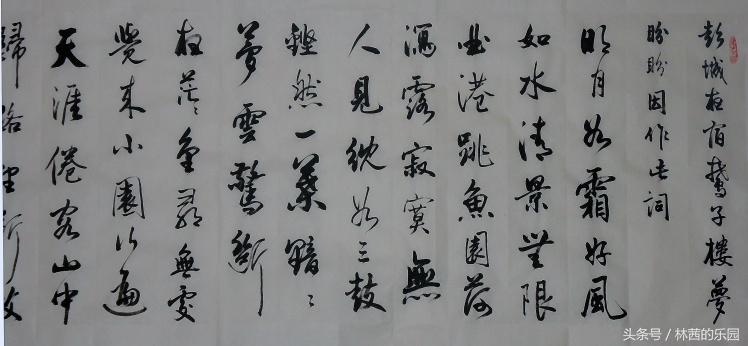 彭城夜宿燕子樓夢
盼盼因作此詞
明月如霜好風
如水清景無限
曲港跳魚圓荷
瀉露寂寞無
人見紞如三鼓
鏗然一葉黯〻
夢雲驚斷
夜茫〻重尋無處
覺來小園行遍
天涯倦客山中
歸路望斷故
头条号 / 林茜的乐园